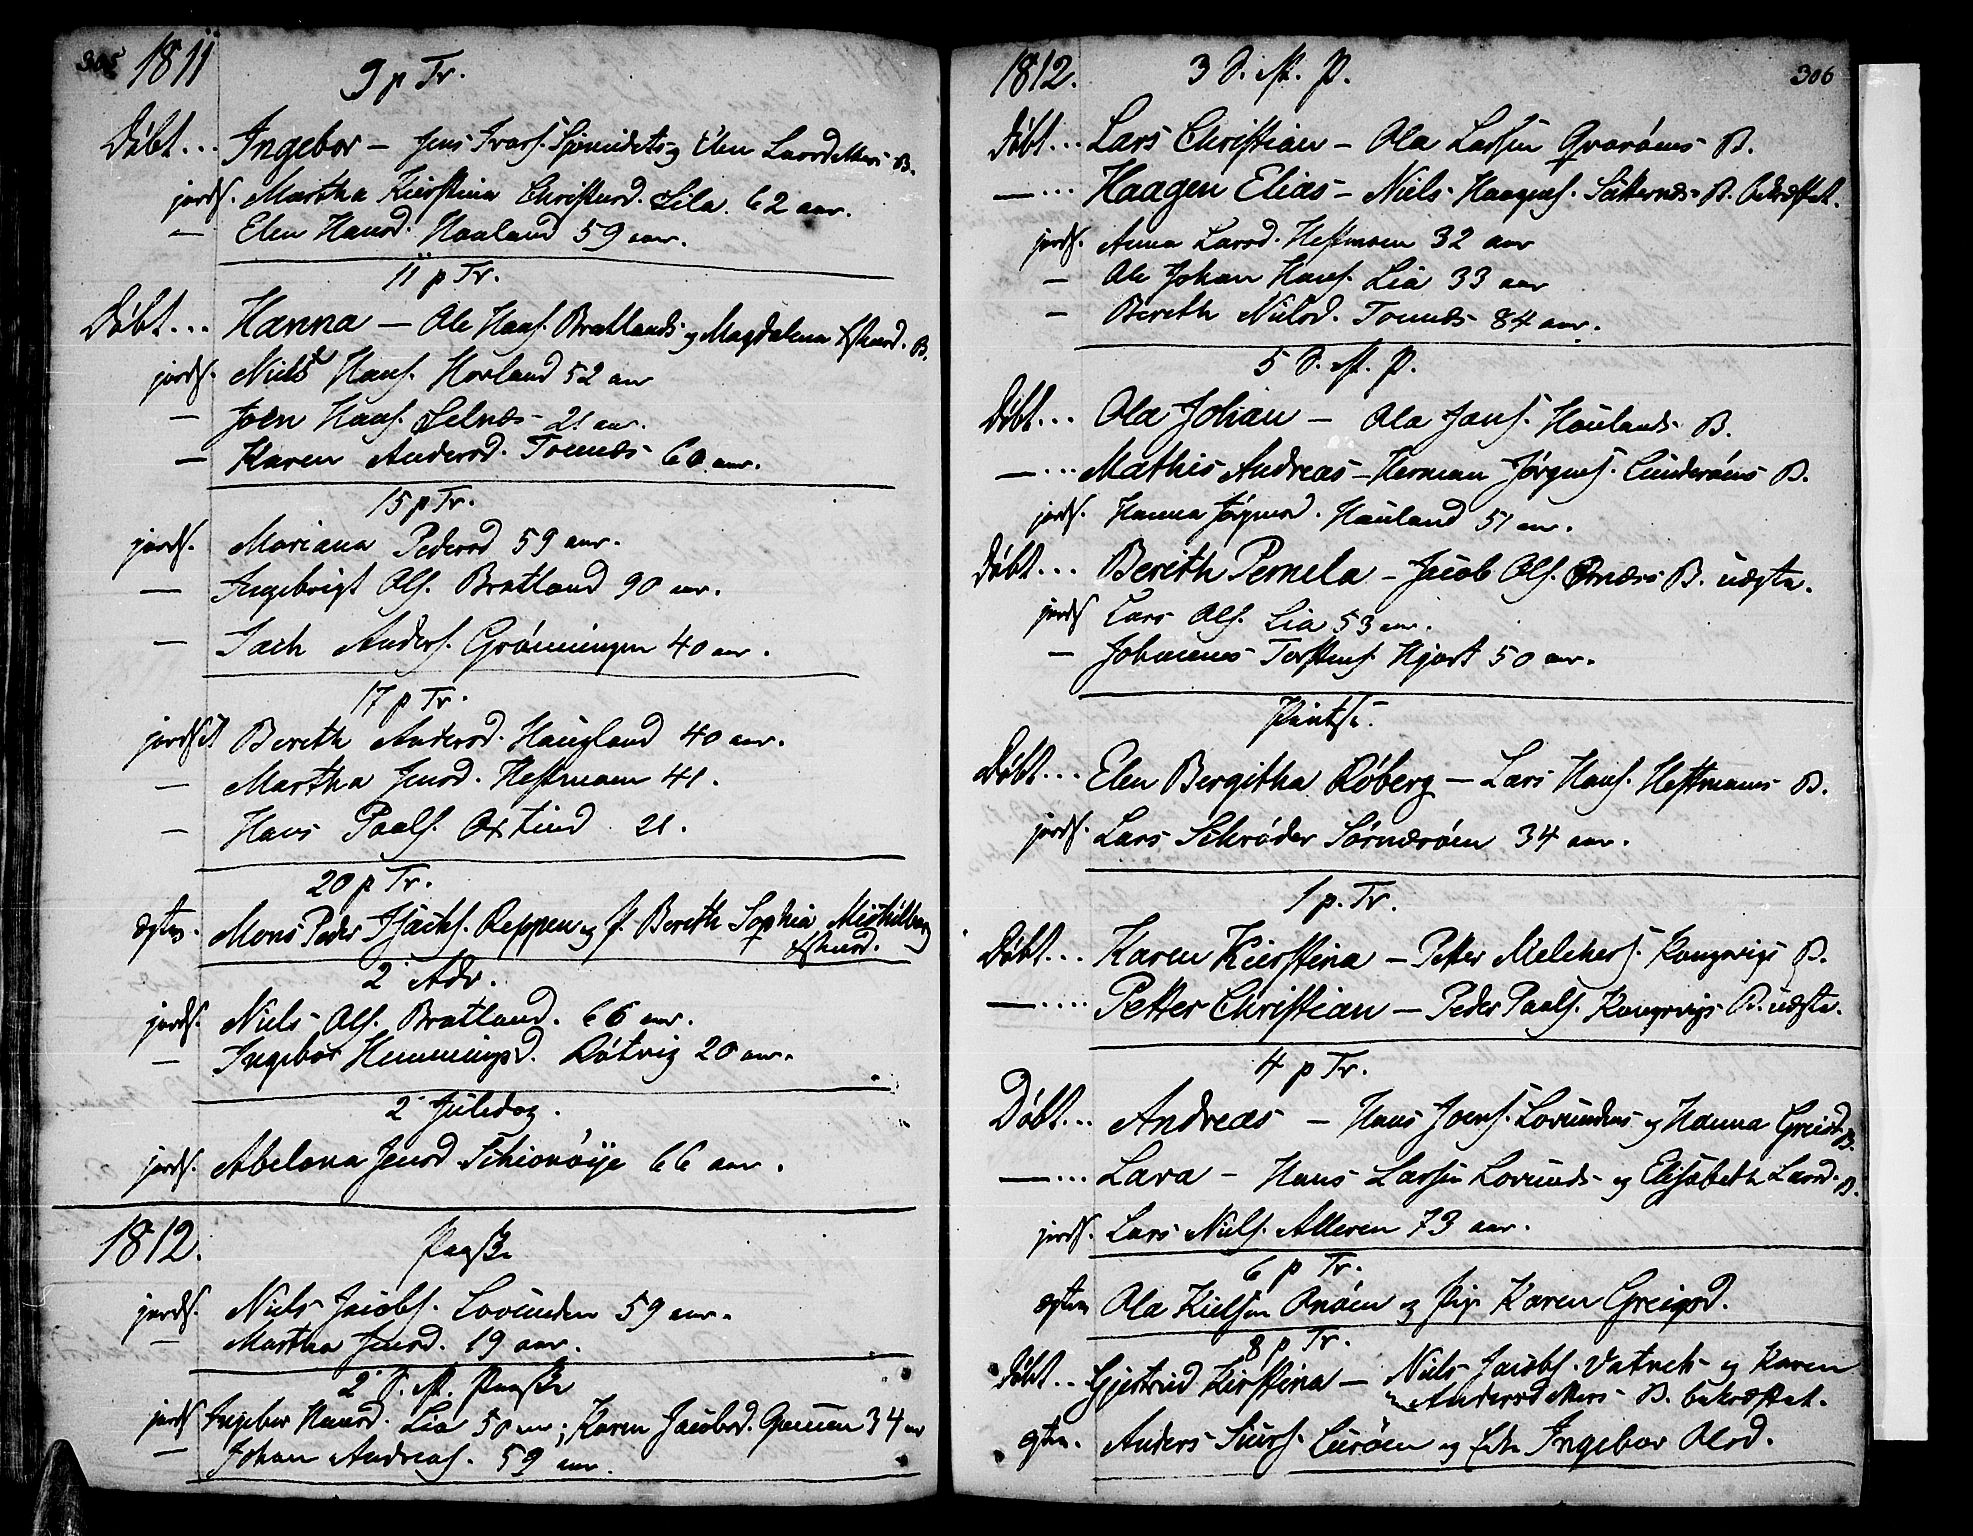 305 1811
9 p Tr.
Døbt... Ingebor - Jens Ivars. og Elen Larsdatters B.
jords. Martha Kierstina Christensd. Sila. 62 aar.
— Elen Hansd. Haaland 59 aar.
11 p Tr.
Døbt... Hanna - Ole Hans. Bratlands og Magdalena B.
jords. Niels Hans. Hovland 52 aar
— Joen Hans. Selnæs 21 aar.
— Karen Andersd. Tonnæs 60 aar.
15 p Tr.
jords. Mariana Pedersd 59 aar.
— Ingebrigt Ols. Bratland 90 aar.
— Isach Anders. Grønningen 40 aar.
17 p Tr.
jordset Bereth Andersd. Haugland 40 aar.
— Martha Jensd. Hestmoen 41.
— Hans Paals. Oxtind 21.
20 p Tr.
Mons Peder Isachs. Reppen og P. Bereth Sophia
2 Adv.
jords. Niels Ols. Bratland. 66 aar.
— Ingebor Hemmingsd. Røtvig 20 aar.
2 Juledag.
jords. Abelona Jensd Schionøije 66 aar.
1812. Paaske
jords. Niels Jacobs. Lovunden 59 aar.
— Martha Jensd. 19 aar.
2 S. p. Paaske
jords Ingebor Hansd. Lia 50 aar; Karen Jacobsd. 34 aar
— Johan Andreas. 59 aar.
1812. 3 S. p. P. 306
Døbt... Lars Christian - Ola Larsen Qvarøens B.
—... Haagen Elias - Niels Haagens. B. bekræftet.
jords. Anna Larsd. Hestmoen 32 aar
— Ole Johan Hans. Lia 33 aar
— Bereth Nielsd. Tonnæs 84 aar.
5 S. p. P.
Døbt... Ola Johan - Ola Jans. Haulands B.
—... Mathis Andreas - Herman Jørgens. B.
jords. Hanna Jørgensd. Hauland 51 aar.
Døbt... Bereth Pernela - Jacob Ols. B. uægte.
jords Lars Ols. Lia 53 aar.
— Johannes Torstens. Hjort 50 aar.
Pintse.
Døbt... Elen Bergitha Røberg - Lars Hans. Hestmoens B.
jords. Lars Schrøder Sørnærøen 34 aar.
1 p. Tr.
Døbt... Karen Kierstina - Petter Melchers. Kongsvigs B.
—.... Petter Christian - Peder Paals. Kongsvigs B. uægte.
4 p Tr.
Døbt... Andreas - Hans Joens. Lovundens og Hanna Greisd. B.
—... Lava - Hans Larsen Lovunds og Elisabeth Larsd. B.
jords. Lars Niels. Alderen 73 aar.
6 p Tr.
Ola Kielsen og Pige Karen Greigsd.
8 p Tr.
Døbt.. Gjertrud Kirstina - Niels Jacobs. og Karen
Andersdatters B. bekræftet.
Anders Siurs. Lurøen og Enke Ingebor Olsd.